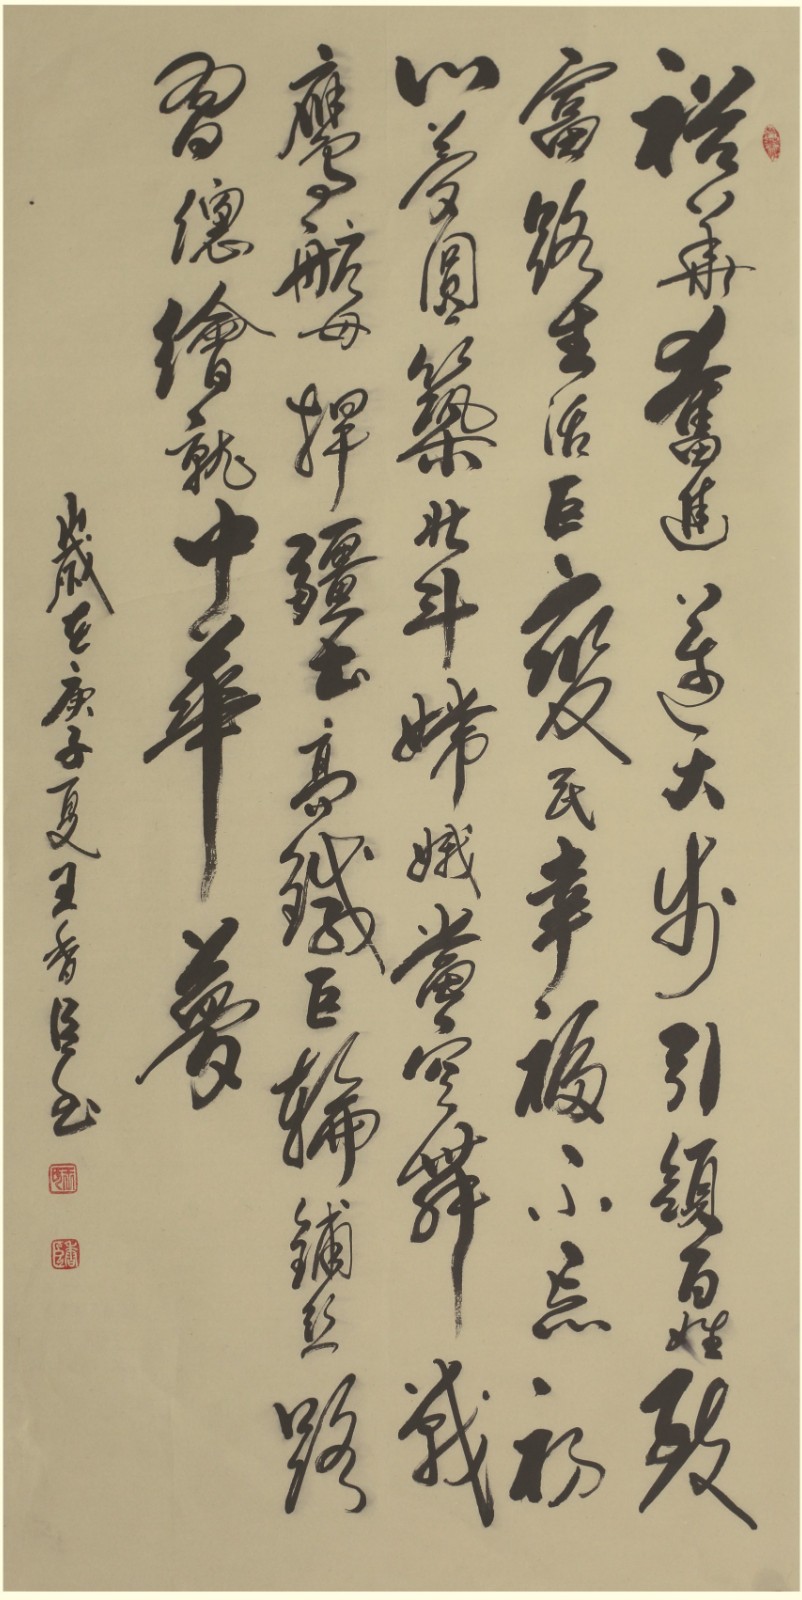 裕華奮進邁大步引領百姓致
富路生活巨變民幸福不忘初
心夢圓築北斗嫦娥當空舞戰
鷹航母捍疆土高鐵巨輪鋪絲路
習總繪就中華夢
歲在庚子夏王香臣書